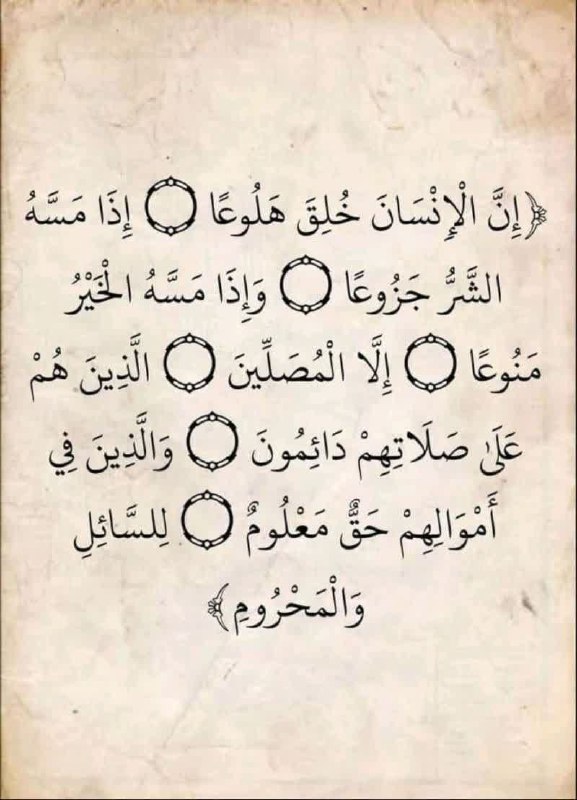 ﴿إِنَّ الْإِنْسَانَ خُلِقَ هَلُوعًا ۝ إِذَا مَسَّهُ
الشَّرُّ جَزُوعًا ۝ وَإِذَا مَسَّهُ الْخَيْرُ
مَنُوعًا ۝ إِلَّا الْمُصَلِّينَ ۝ الَّذِينَ هُمْ
عَلَىٰ صَلَاتِهِمْ دَائِمُونَ ۝ وَالَّذِينَ فِي
أَمْوَالِهِمْ حَقٌّ مَعْلُومٌ ۝ لِلسَّائِلِ
وَالْمَحْرُومِ﴾